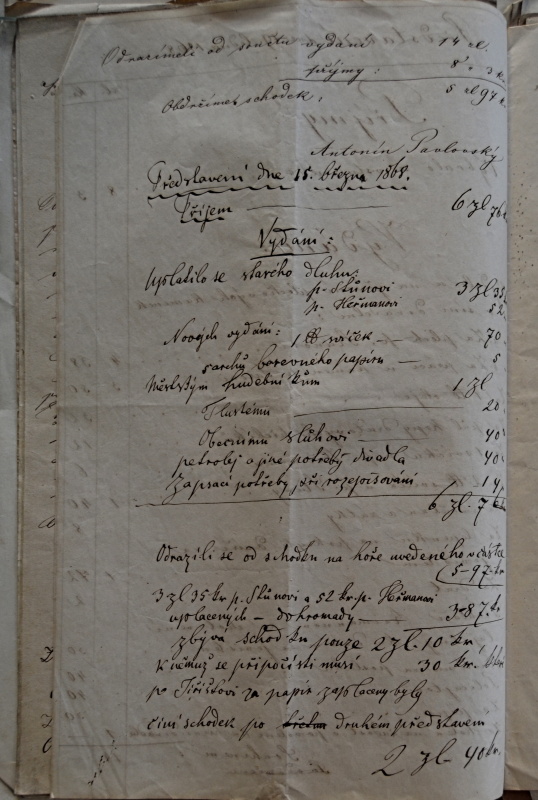 Odrazímeli od součtu vydání 14 zl.
příjmy: 8 " 3 kr
Obdržíme schodek: 5 zl 97 k
Antonín Pavlovský
Představení dne 15. března 1868.
Příjem 6 zl 76
Vydání:
Uplatilo se starého dluhu:
p. Stůnovi 3 zl 35
p. Heřmanovi 52
Nových vydání: 1 ℔ svíček 70
barevného papíru 5
Městským hudebníkům 1 zl
Tlustému 20
Obecnímu sluhovi 40
petrolej a jiné potřeby divadla 40
Zapsací potřeby při rozepisování 14
6 zl. 76
Odrazíli se od schodku na hoře uvedeného v částce
5-97 kr
3 zl 35 kr p. Stůnovi a 52 kr. p. Heřmanovi
uplacených – dohromady – 3 87 kr
zbývá schodku pouze 2 zl. 10 kr
k němuž se připočísti musí 30 kr.
po Jiříškovi za papír zaplaceny byly
činí schodek po druhém představení
2 zl 40 kr.